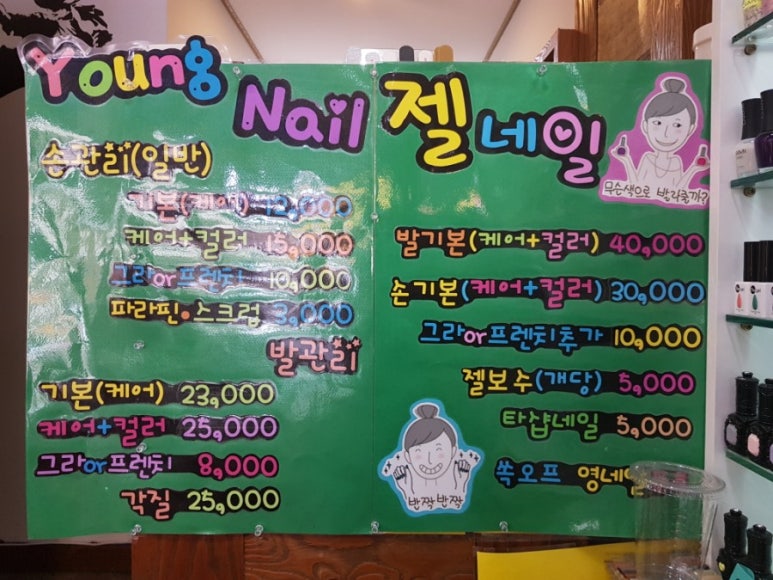 Young Nail
손관리(일반)
기본(케어) 12,000
케어+컬러 15,000
그라or프렌치 10,000
파라핀•스크럽 3,000
발관리
기본(케어) 23,000
케어+컬러 25,000
그라or프렌치 8,000
각질 25,000
젤네일
무슨색으로 발라줄까?
발기본(케어+컬러) 40,000
손기본(케어+컬러) 30,000
그라or프렌치추가 10,000
젤보수(개당) 5,000
타샵네일 5,000
쏙오프 영네일
반짝반짝